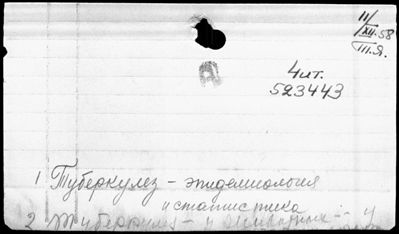 II/
XII.58
III.Я.
Чит.
523443
1 Туберкулез - эпидемиология
и статистика
2 Туберкулез - у